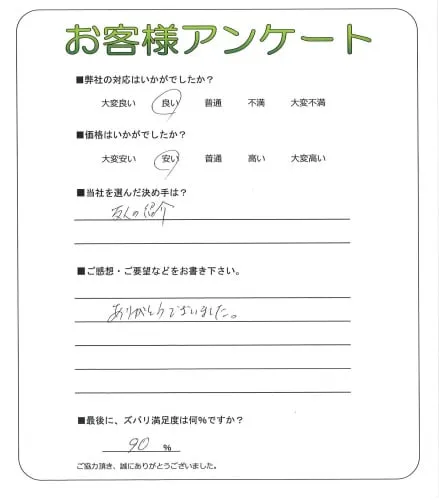 お客様アンケート
■弊社の対応はいかがでしたか？
大変良い 良い 普通 不満 大変不満
■価格はいかがでしたか？
大変安い 安い 普通 高い 大変高い
■当社を選んだ決め手は？
友人の紹介
■ご感想・ご要望などをお書き下さい。
ありがとうございました。
■最後に、ズバリ満足度は何%ですか？
90 %
ご協力頂き、誠にありがとうございました。